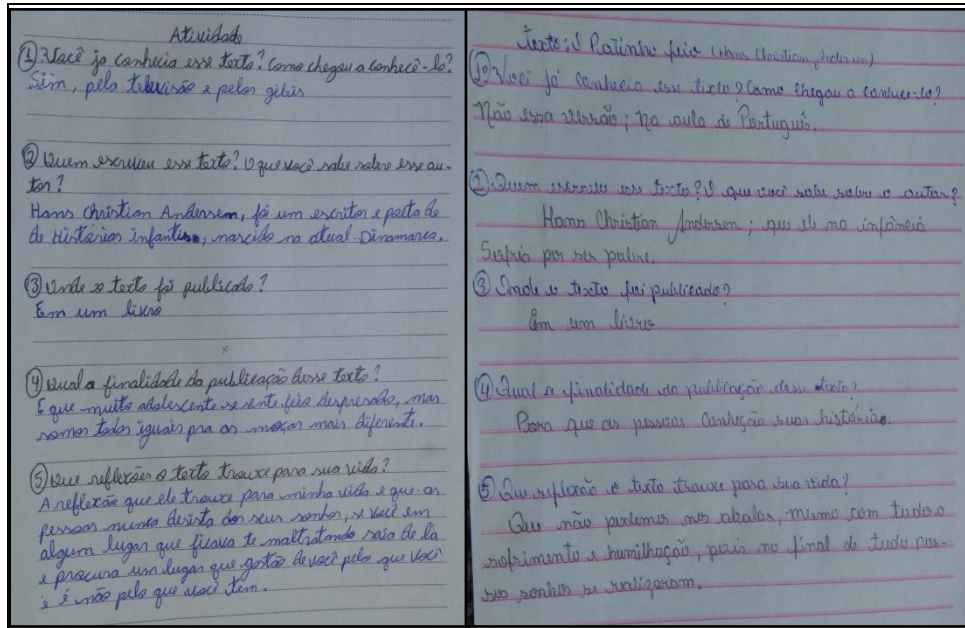 Atividade
① Você já conhecia esse texto? Como chegou a conhecê-lo?
Sim, pela televisão e pelos gibis
② Quem escreveu esse texto? O que você sabe sobre esse au-
tor?
Hans Christian Andersem, foi um escritor e poeta de
de Histórias infantis, nascido na atual Dinamarca.
③ Onde o texto foi publicado?
Em um livro
④ Qual a finalidade da publicação desse texto?
E que muito adolescente se sente feio despresado, mas
somos todos iguais pra os moças mais diferente.
⑤ Que reflexões o texto trouxe para sua vida?
A reflexão que ele trouxe para minha vida e que as
pessoas nunca desista dos seus sonhos, se você em
algum lugar que ficava te maltratando saía de lá
e procura um lugar que gostão de você pelo que você
é é não pelo que você tem.
Texto: O Patinho feio (Hans Christian Andersen)
1º Você já conhecia esse texto? Como chegou a conhece-lo?
Não essa versão; na aula de Português.
② Quem escreveu esse texto? O que você sabe sobre o autor?
Hans Christian Andersen; que ele na infância
Sofrio por ser pobre.
③ Onde o texto foi publicado?
Em um livro
④ Qual a finalidade da publicação desse texto?
Para que as pessoas conheção suas histórias.
⑤ Que reflexão o texto trouxe para sua vida?
Que não podemos nos abalar, mesmo com tudo o
sofrimento e humilhação, pois no final de tudo nos-
sos sonhos se realizaram.